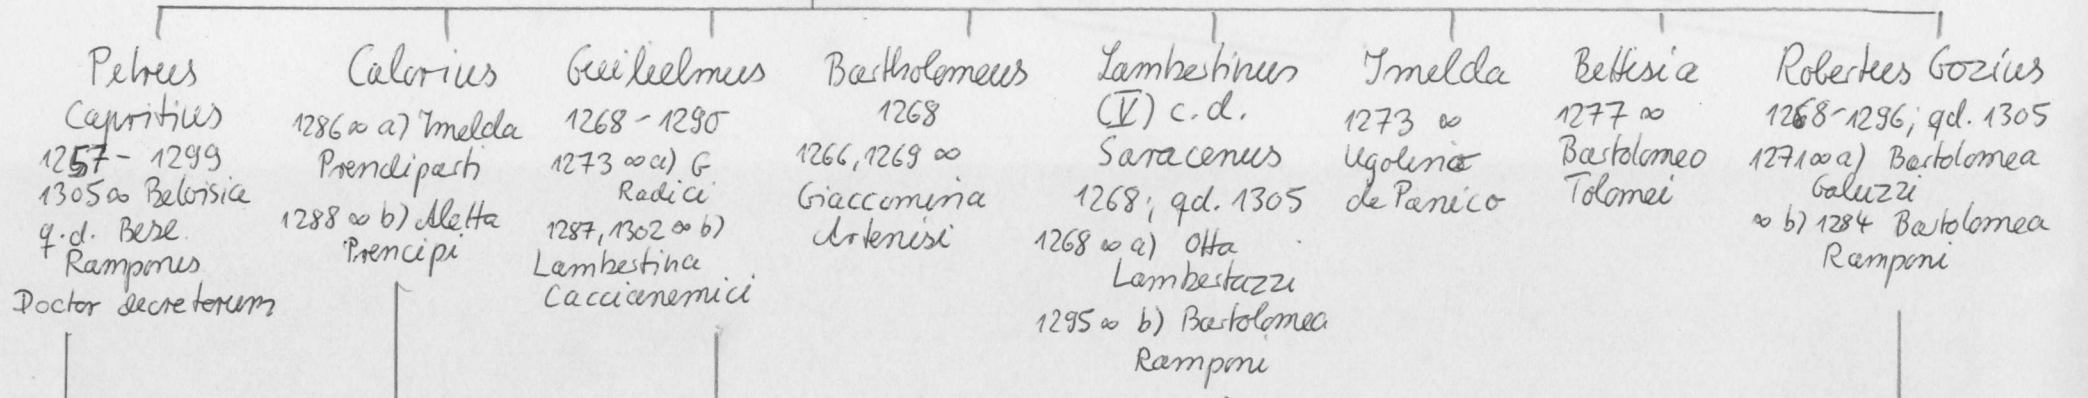 Petrus
Capritius
1257 - 1299
1305 ∞ Beloisia
q. d. Bese.
Ramponis
Doctor decretorum
Calorius
1286 ∞ a) Imelda
Prendiparti
1288 ∞ b) Aletta
Prencipi
Guilielmus
1268 - 1290
1273 ∞ a) G
Radici
1287, 1302 ∞ b)
Lambertina
Caccianemici
Bartholomeus
1268
1266, 1269 ∞
Giaccomina
Artenisi
Lambertinus
(V) c. d.
Saracenus
1268; qd. 1305
1268 ∞ a) Otta
Lambertazzi
1295 ∞ b) Bartolomea
Ramponi
Imelda
1273 ∞
Ugolino
da Panico
Bettisia
1277 ∞
Bartolomeo
Tolomei
Robertus Gozius
1268-1296; qd. 1305
1271 ∞ a) Bartolomea
Galuzzi
∞ b) 1284 Bartolomea
Ramponi